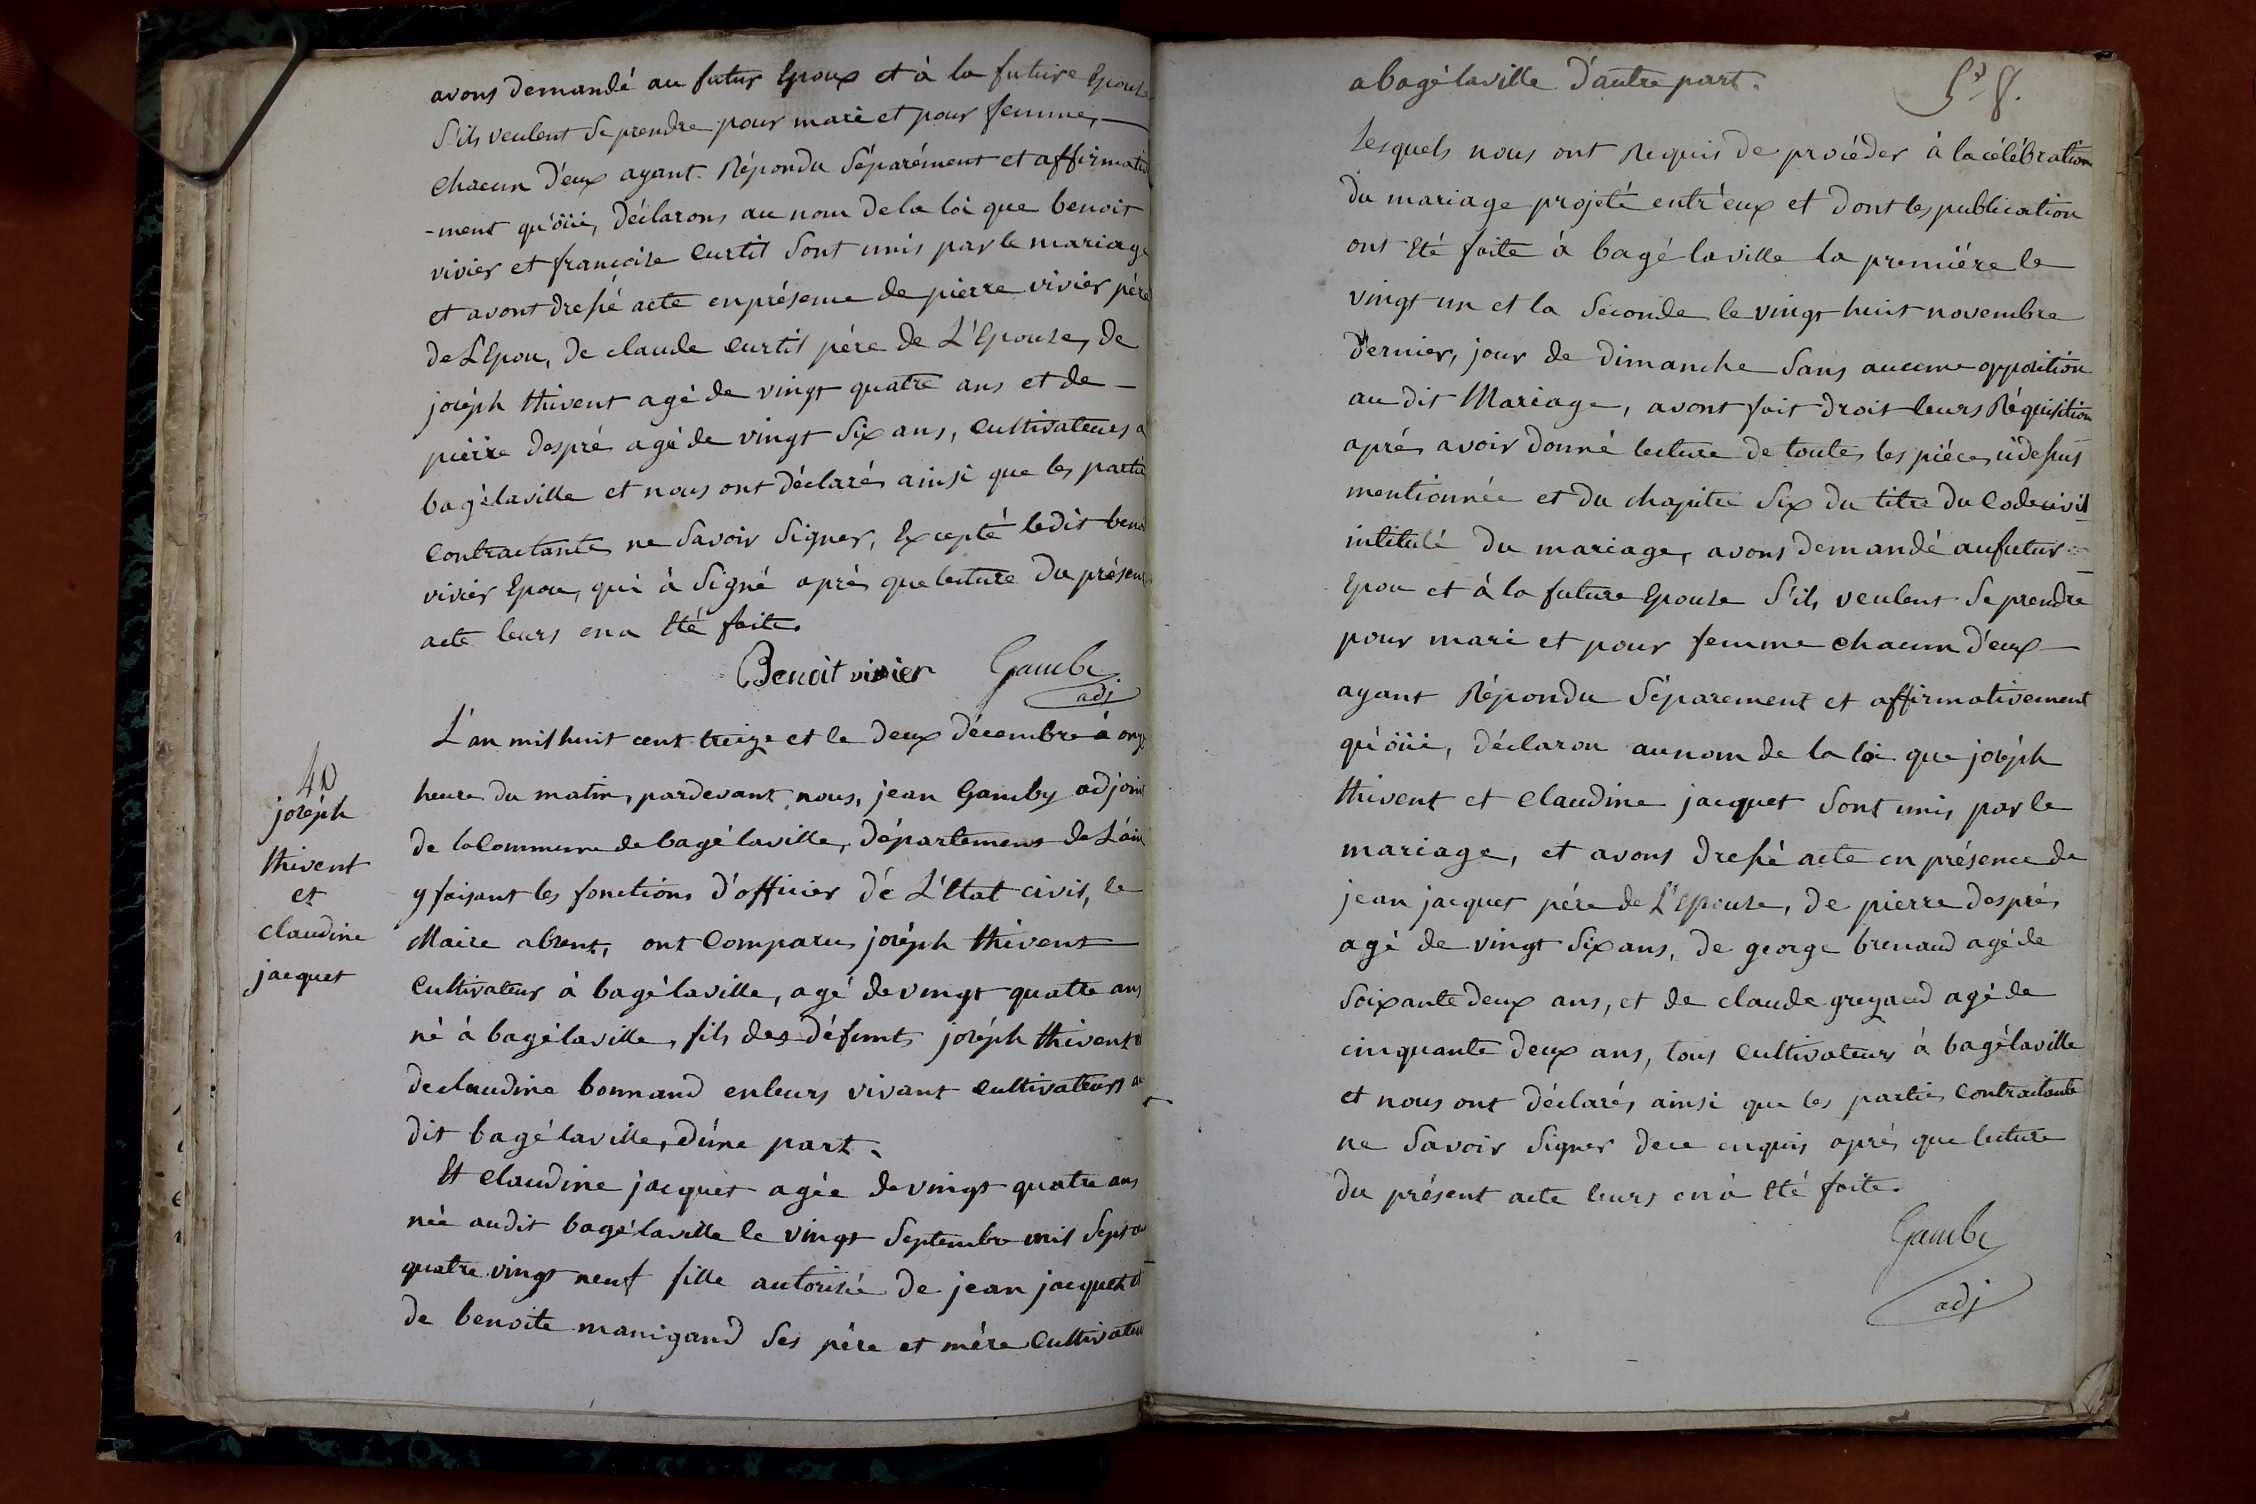 avons demandé au futur Epoux et à la future Epouse
S'ils veulent se prendre pour mari et pour femme,
chacun d'eux ayant Répondu Séparément et affirmati
-ment qu'öüi, déclarons au nom de la loi que benoit
vivier et francoise Curtil Sont unis par le mariage
et avont dressé acte en présence de pierre vivier pére
de L'Epou, de claude Curtil pére de L'Epouse, de
joséph thivent agé de vingt quatre ans et de
pierre despré agé de vingt Six ans, Cultivateurs a
bagélaville et nous ont déclarés ainsi que les partie
Contractante ne Savoir Signer, Excepté ledit beno
vivier Epou, qui à Signé aprés que lecture du présent
acte leurs en a Eté faite.
Benoit vivier Gamby
adj
40
joséph
thivent
et
claudine
jacquet
L'an mil huit cent treize et le deux décembre à onze
heure du matin, pardevant nous, jean Gamby adjoint
de la Commune de bagélaville, département de L'ain
y faisant les fonctions d'officier dé L'Etat civil, le
Maire absent, ont Comparu joséph thivent
Cultivateur à bagélaville, agé de vingt quatre ans
né à bagélaville, fils des défunts joséph thivent et
de claudine bonnand en leurs vivant Cultivateurs au
dit bagélaville, d'úne part.
Et Claudine jacquet agée de vingt quatre ans
née audit bagélaville le vingt Septembre mil Sept cen
quatre vingt neuf fille autorisée de jean jacquet et
de benoite manigand Ses pére et mére Cultivateur
a bagélaville d'autre part.
58.
Lesquels nous ont Requis de procéder à la célébration
du mariage projeté entr'eux et dont les publication
ont Eté faite à bagé laville la premiére le
vingt un et la Seconde le vingt huit novembre
dernier, jour de dimanche Sans aucune opposition
au dit Mariage, avont fait droit leurs Réquisition
aprés avoir donné lecture de toutes les piéces cidessus
mentionnée et du chapitre Six du titre du Code civil
intitulé du mariage, avons demandé au futur
Epou et à la future Epouse S'ils veulent Se prendre
pour mari et pour femme Chacun d'eux
ayant Répondu Séparement et affirmativement
qu'öüi, déclaron au nom de la loi que joséph
thivent et Claudine jacquet Sont unis par le
mariage, et avons dressé acte en présence de
jean jacquet pére de L'Epouse, de pierre després
agé de vingt Six ans, de george brenaud agé de
Soixante deux ans, et de claude greyaud agé de
cinquante deux ans, tous Cultivateurs à bagélaville
et nous ont déclarés ainsi que les partie Contractante
ne Savoir Signer de ce enquis aprés que lecture
du présent acte leurs en à Eté faite.
Gamby
adj